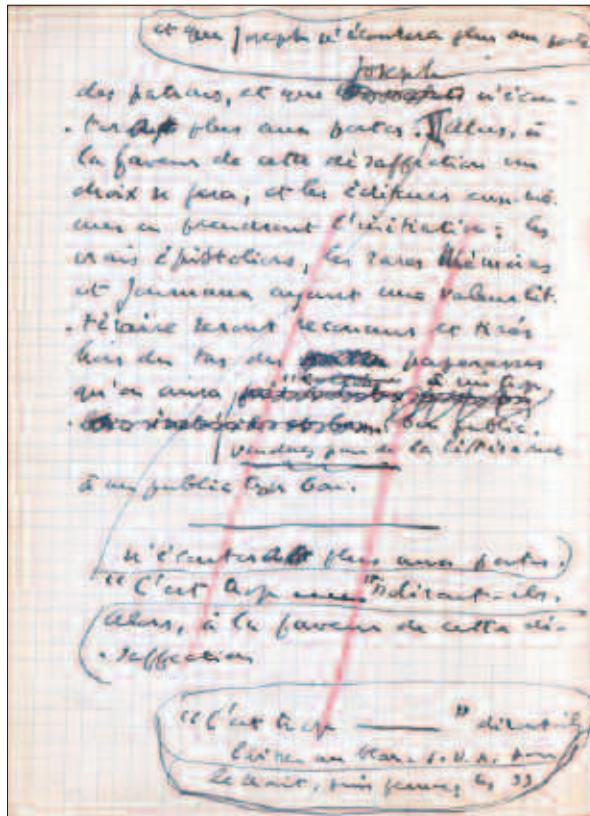 et que Joseph n'écoutera plus aux portes
Joseph
des patrons, et que n'écou-
tera plus aux portes. Alors, à
la faveur de cette désaffection un
choix se fera, et les éditeurs eux-mê-
mes en prendront l'initiative; les
vrais épistoliers, les rares Mémoires
et Journaux ayant une valeur lit-
téraire seront reconnus et tirés
hors du tas des paperasses
qu'on aura à un trop
bon public.
vendues pour de la littérature
à un public trop bon.
n'écoutera plus aux portes.
"C'est trop " diront-ils.
Alors, à la faveur de cette dé-
saffection
"C'est trop " diront-ils
laisser un blanc s.v.p. sous
le trait, puis fermez les »